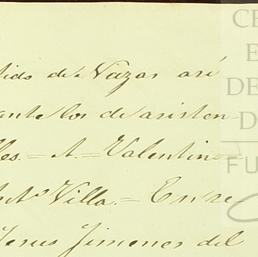 tido de Nazar así
ante los de asisten-
les. = A. = Valentin
Villa = Enre
Jesus Jimenes del
CE
E
DE
D
FU